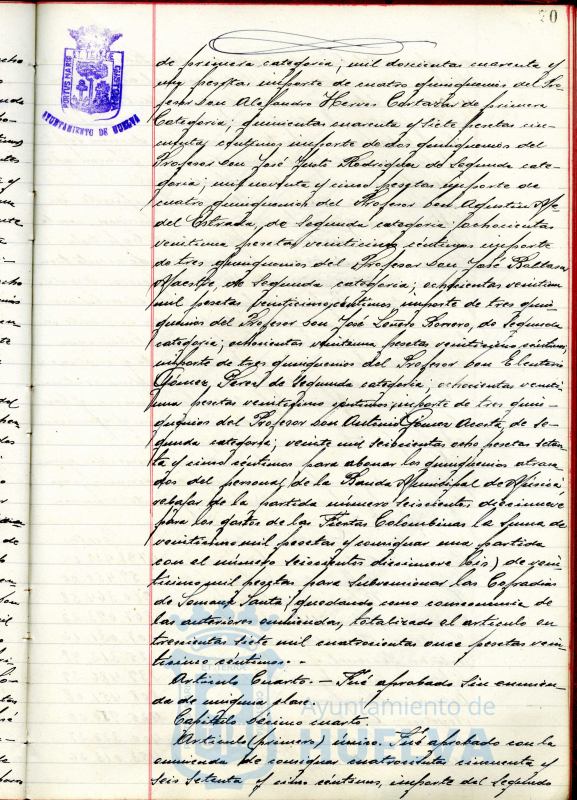 70
PORTUS MARIS ET TERRE CUSTODIA
AYUNTAMIENTO DE HUELVA
de primera categoria; mil doscientas cuarenta y
una pesetas importe de cuatro quinquenios del Pro-
fesor Don Alejandro Hervas de primera
Categoria; quinientas cuarenta y siete pesetas cin-
cuenta céntimos importe de dos quinquenios del
Profesor Don José Justo Rodriguez de Segunda cate-
goria; mil noventa y cinco pesetas importe de
cuatro quinquenios del Profesor Don Agustin
del Estrada, de Segunda categoria; ochocientas
veintiuna pesetas veinticinco céntimos importe
de tres quinquenios del Profesor Don José Baltasar
Maestre, de Segunda categoria; ochocientas veintiun
mil pesetas veinticinco céntimos importe de tres quin-
quenios del Profesor Don José Borrero, de Segunda
categoria; ochocientas veintiuna pesetas veinticinco céntimos,
importe de tres quinquenios del Profesor Don Eleuterio
Gómez Perez de Segunda categoria; ochocientas veinti-
una pesetas veinticinco céntimos importe de tres quin-
quenios del Profesor Don Antonio Gómez Acosta, de Se-
gunda categoria; veinte mil seiscientas ocho pesetas seten-
ta y cinco céntimos para abonar los quinquenios atrasa-
dos del personal de la Banda Municipal de Música,
rebajar de la partida número seiscientos diecinueve
para los gastos de las Fiestas Colombinas la suma de
veinticinco mil pesetas y consignar una partida
con el número seiscientos diecinueve bis) de vein-
ticinco mil pesetas para subvencionar las Cofradías
de Semana Santa; quedando, como consecuencia de
las anteriores enmiendas, totalizado el articulo en
trescientas siete mil cuatrocientas once pesetas vein-
ticinco céntimos.-
Articulo Cuarto.- Fué aprobado sin enmien-
da de ninguna clase.
Capitulo Décimo cuarto.
Articulo (primero) único. Fué aprobado con la
enmienda de consignar cuatrocientas cincuenta y
seis setenta y cinco céntimos, importe del segundo
Ayuntamiento de
HUELVA